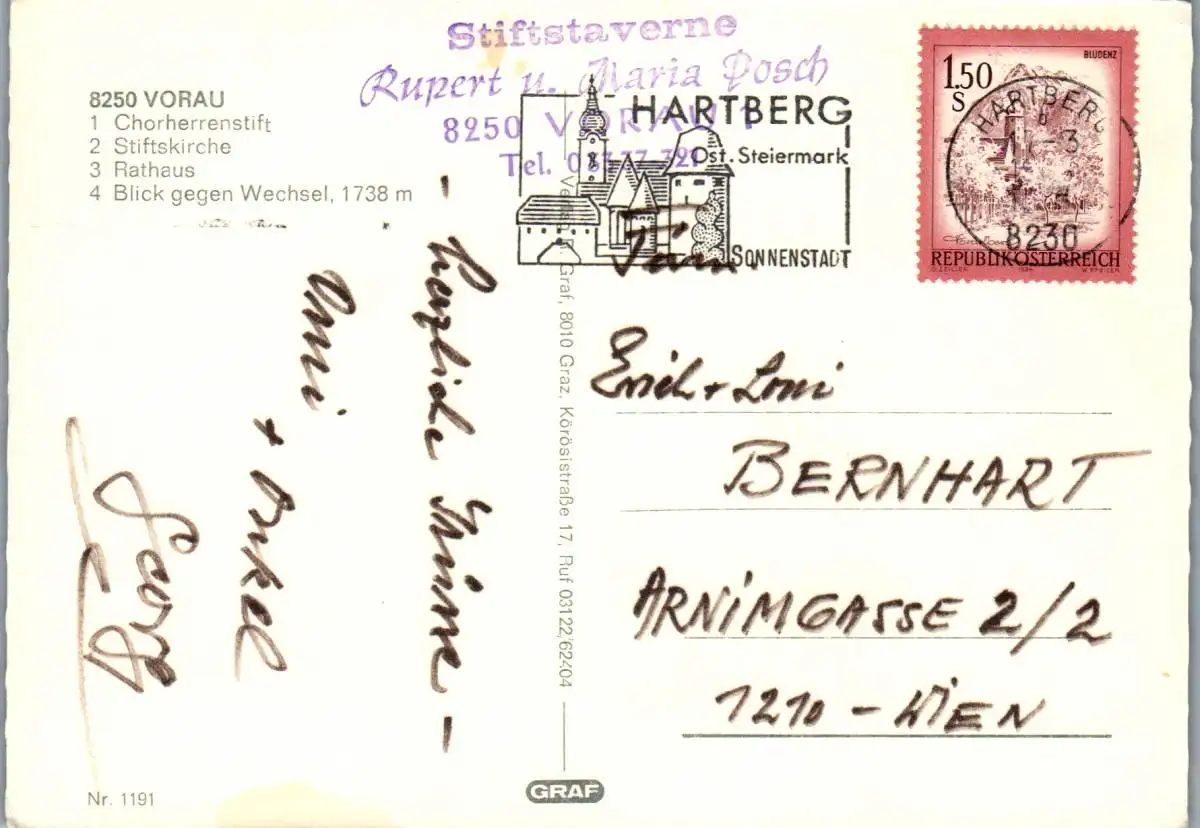 Stiftstaverne
Rupert u. Maria Posch
8250 VORAU 1
Tel.
8250 VORAU
1 Chorherrenstift
2 Stiftskirche
3 Rathaus
4 Blick gegen Wechsel, 1738 m
HARTBERG
Ost. Steiermark
SONNENSTADT
BLUDENZ
1.50
S
HARTBERG
8230
REPUBLIK ÖSTERREICH
- herzliche Grüsse -
Omi
+ Onkel
Georg
Fam.
Erich + Loni
BERNHART
ARNIMGASSE 2/2
1210 - WIEN
Graf, 8010 Graz, Körösistraße 17, Ruf 03122/62404
Nr. 1191
GRAF